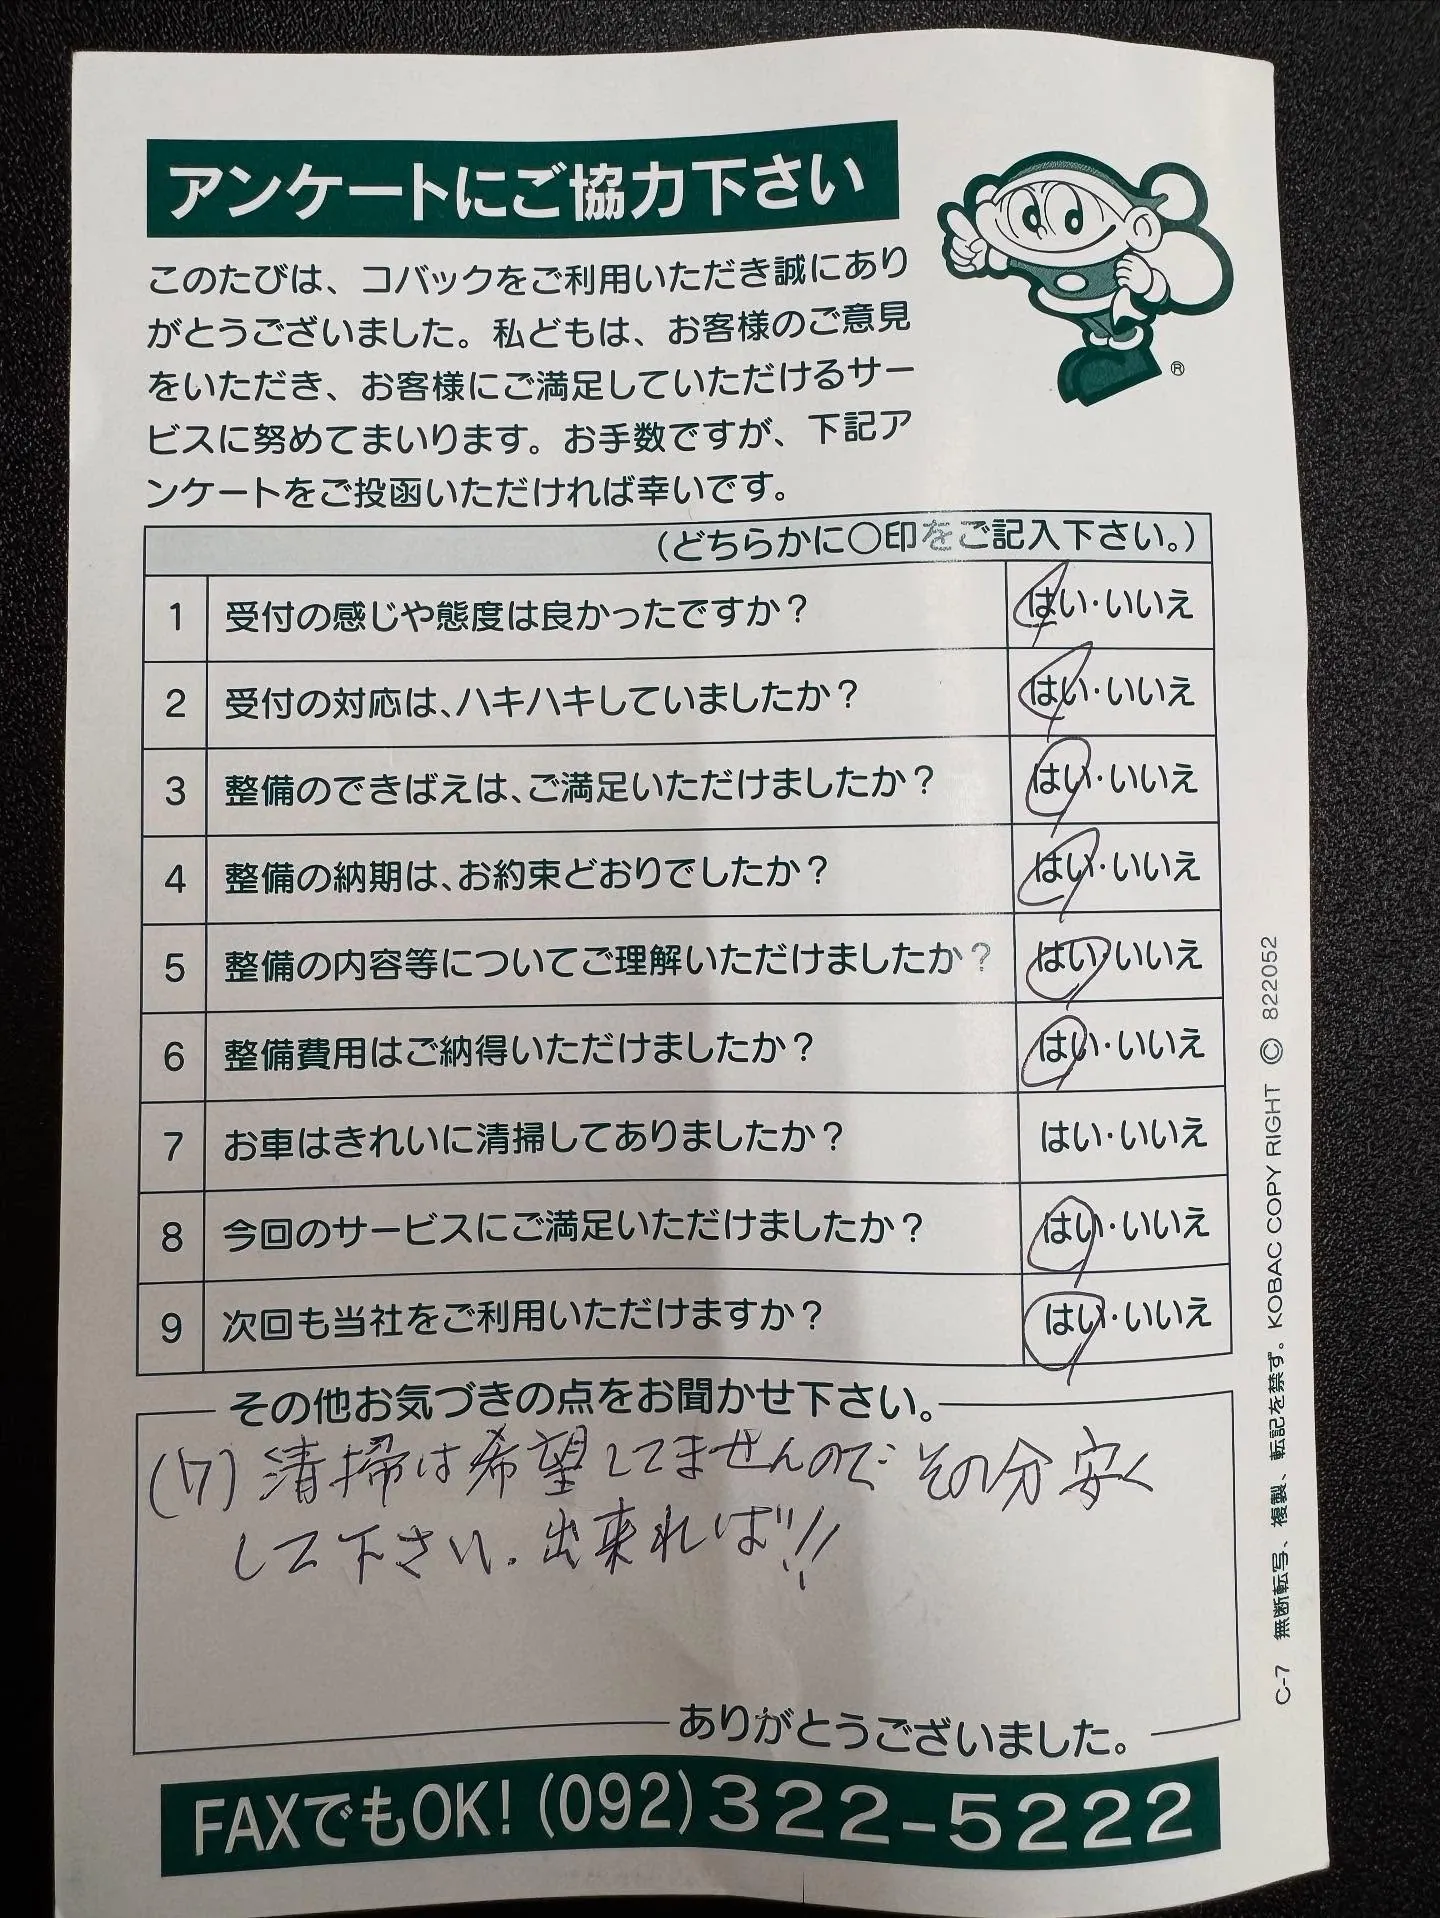 アンケートにご協力下さい
このたびは、コバックをご利用いただき誠にあり
がとうございました。私どもは、お客様のご意見
をいただき、お客様にご満足していただけるサー
ビスに努めてまいります。お手数ですが、下記ア
ンケートをご投函いただければ幸いです。
®
(どちらかに○印をご記入下さい。)
1 受付の感じや態度は良かったですか？ はい・いいえ
2 受付の対応は、ハキハキしていましたか？ はい・いいえ
3 整備のできばえは、ご満足いただけましたか？ はい・いいえ
4 整備の納期は、お約束どおりでしたか？ はい・いいえ
5 整備の内容等についてご理解いただけましたか？ はい・いいえ
6 整備費用はご納得いただけましたか？ はい・いいえ
7 お車はきれいに清掃してありましたか？ はい・いいえ
8 今回のサービスにご満足いただけましたか？ はい・いいえ
9 次回も当社をご利用いただけますか？ はい・いいえ
その他お気づきの点をお聞かせ下さい。
(7) 清掃は希望してませんので その分安く
して下さい。出来れば!!
ありがとうございました。
FAXでもOK! (092)322-5222
C-7 無断転写、複製、転記を禁ず。KOBAC COPY RIGHT © 822052